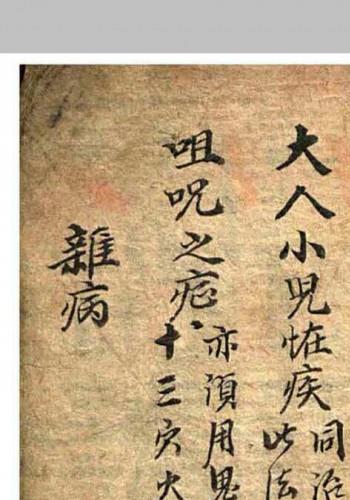 大人小児恠疾
同治
此法
咀呪之
亦須用鬼
十三穴火
雜病